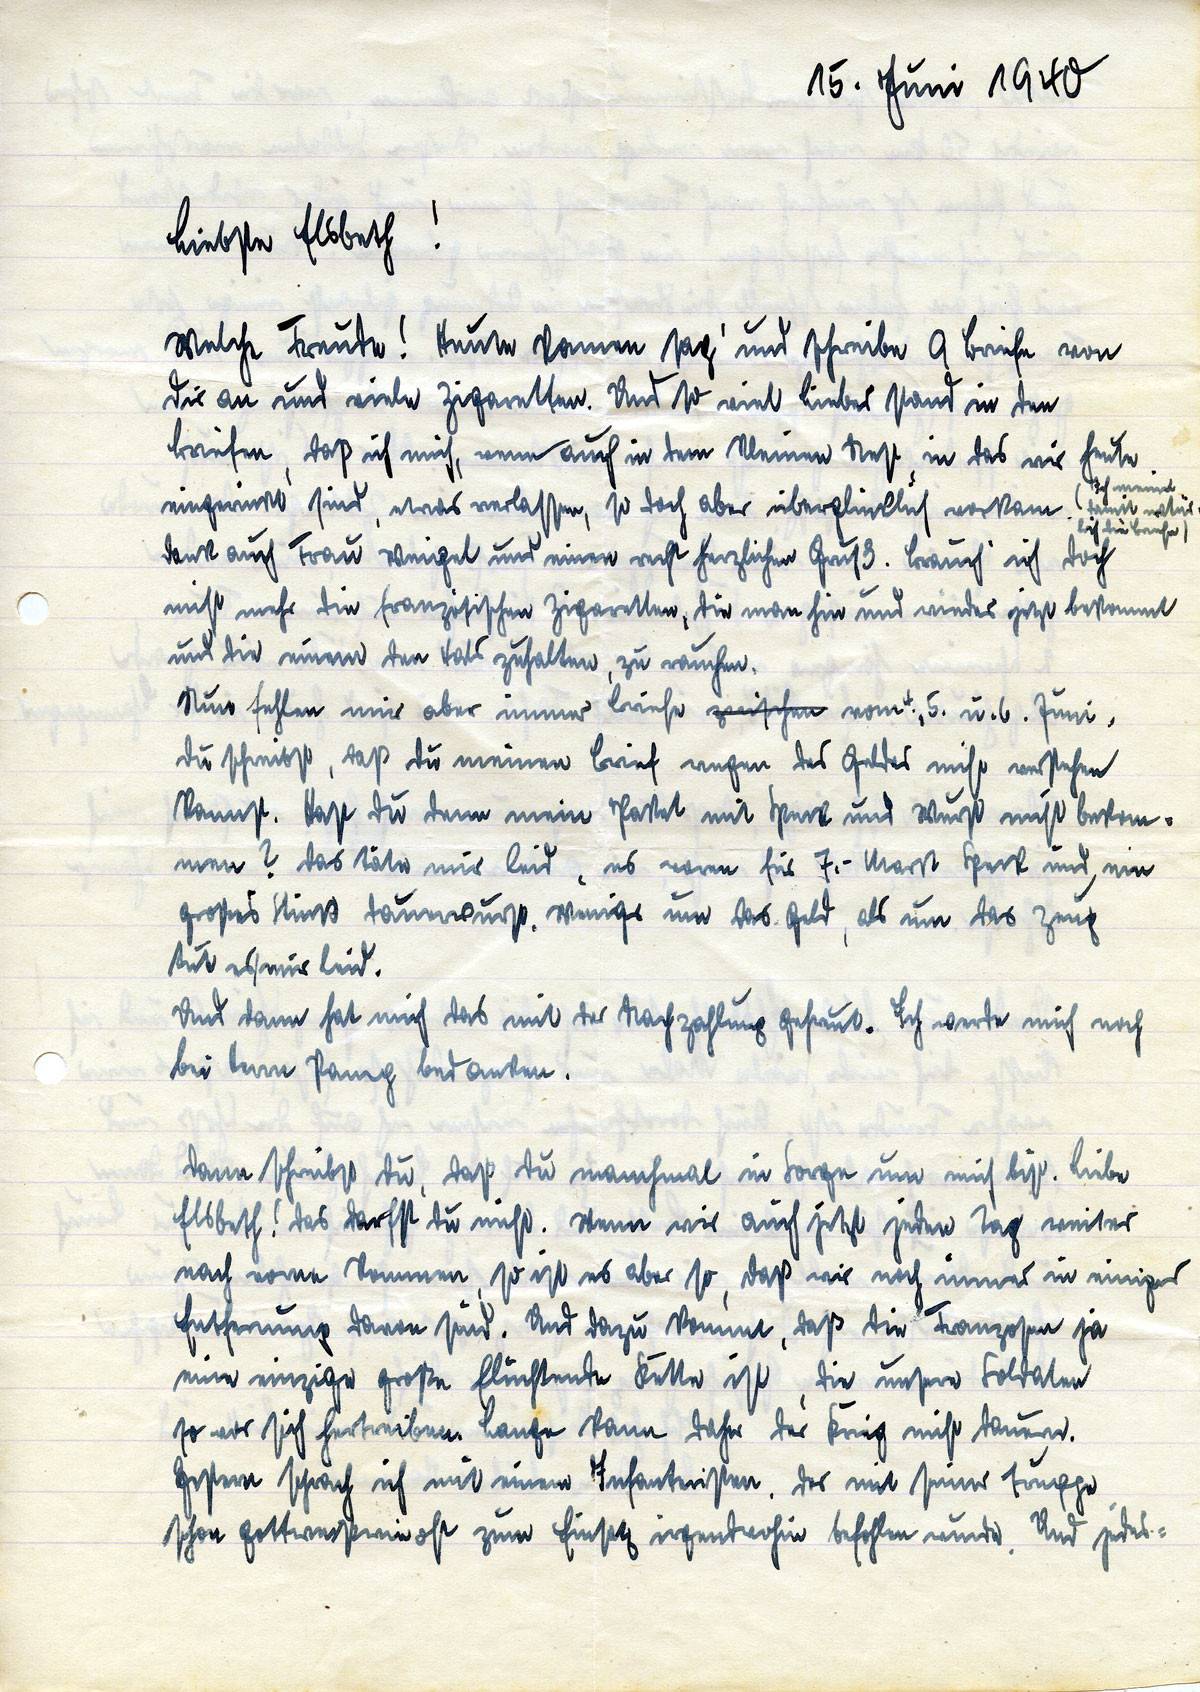 15. Juni 1940
Liebste Elsbeth!
Welche Freude! Heute kamen sag' und schreibe 9 Briefe von
dir an und viele Zigaretten. Und so viel Liebes stand in den
Briefen, daß ich mich, wenn auch in dem kleinen Nest, in das wir heute
eingerückt sind, etwas verlassen, so doch aber überglücklich vorkam. (Ich meine
damit natür-
lich die Briefe)
Dank auch Frau Weigel und einen recht herzlichen Gruß. Brauch' ich doch
nicht mehr die französischen Zigaretten, die man hin und wieder jetzt bekommt
und die einem den Hals zuhalten, zu rauchen.
Nun fehlen mir aber immer Briefe zwischen vom 4., 5. u. 6. Juni.
Du schreibst, daß du meinen Brief wegen des Geldes nicht verstehen
kannst. Hast du denn mein Paket mit Speck und Wurst nicht bekom-
men? Das täte mir leid, es waren für 7.- Mark Speck und ein
großes Stück Dauerwurst. Weniger um das Geld, als um das Zeug
tut es mir leid.
Und dann hat mich das mit der Nachzahlung gefreut. Ich werde mich noch
bei Herrn bedanken.
Dann schreibst du, daß du manchmal in Sorge um mich bist. Liebe
Elsbeth! Das darfst du nicht. Wenn wir auch jetzt jeden Tag weiter
nach vorne kommen, so ist es aber so, daß wir noch immer in einiger
Entfernung davon sind. Und dazu kommt, daß die Franzosen ja
eine einzige große flüchtende Kette ist, die unsere Soldaten
so vor sich hertreiben. Lange kann daher der Krieg nicht dauern.
Gestern sprach ich mit einem Infanteristen, der mit seiner Truppe
schon gottweißwieoft zum Einsatz irgendwohin befohlen wurde. Und jedes-